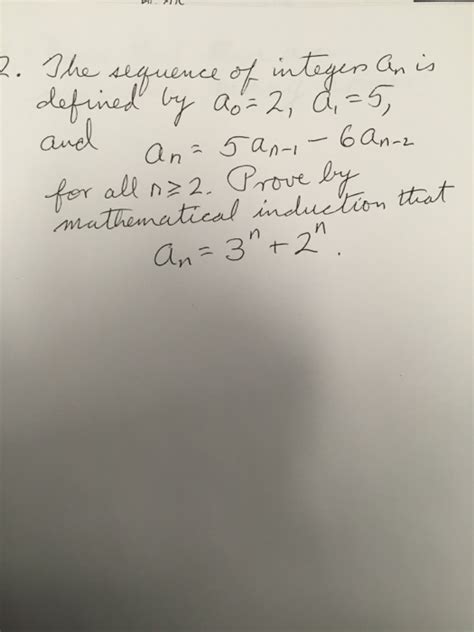 2. The sequence of integers aₙ is
defined by a₀ = 2, a₁ = 5,
and aₙ = 5aₙ₋₁ - 6aₙ₋₂
for all n ≥ 2. Prove by
mathematical induction that
aₙ = 3ⁿ + 2ⁿ.